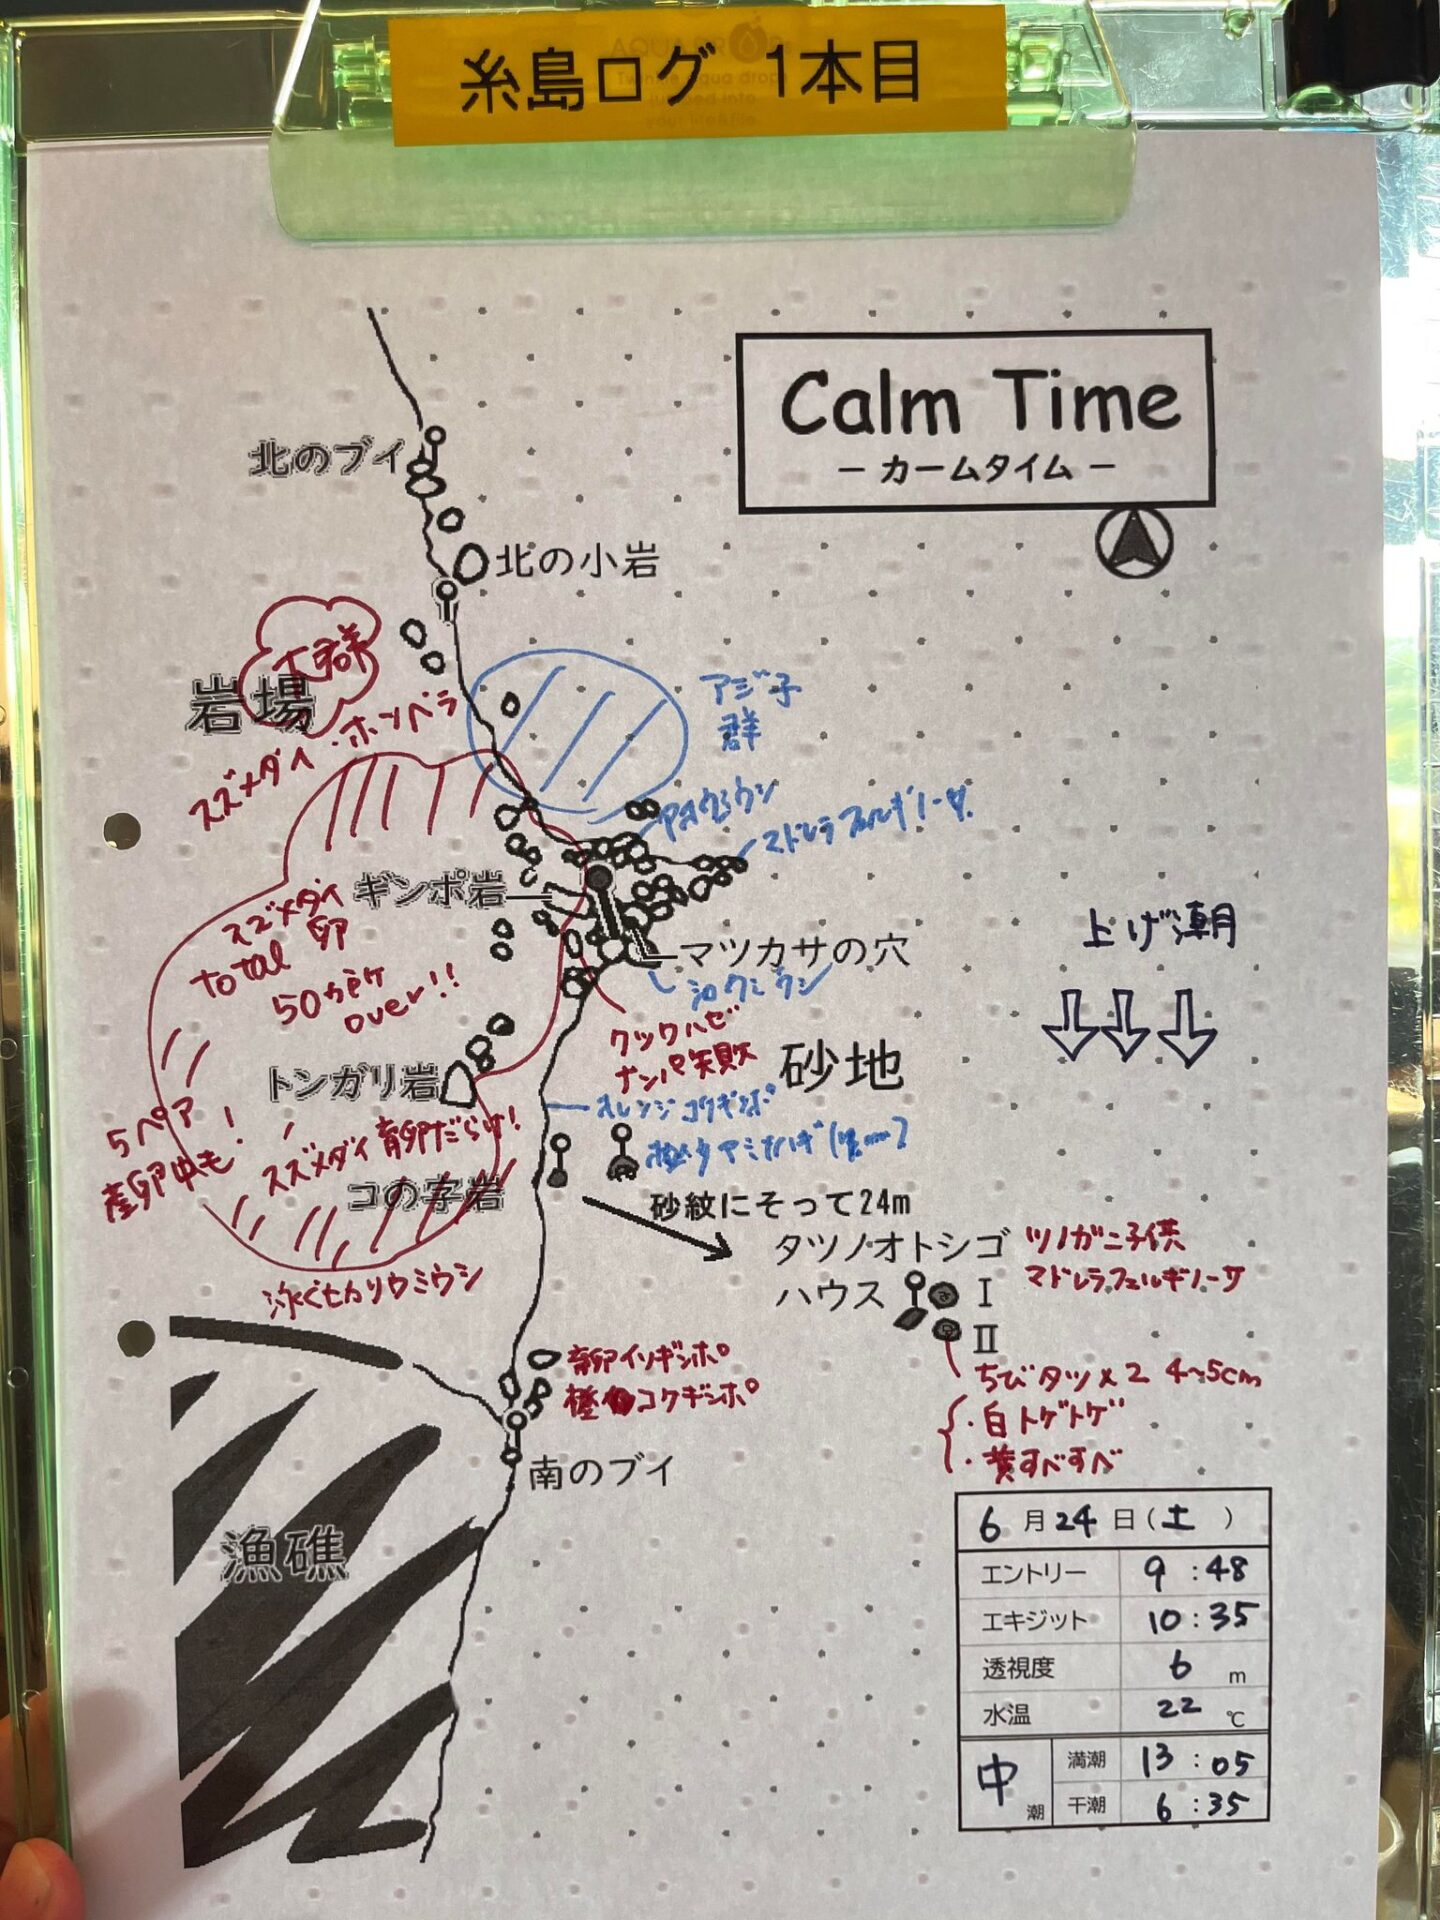 糸島ログ 1本目
Calm Time
－カームタイム－
北のブイ
北の小岩
大群
岩場
スズメダイ・ホンベラ
アジ子
群
アメウミウシ
ギンポ岩
スズメダイ
卵
total
50カ所
over!!
マツカサの穴
シロウミウシ
上げ潮
クツワハゼ
ナンパ失敗
砂地
トンガリ岩
オレンジコケギンポ
5ペア
産卵中も!
スズメダイ育卵だらけ!
コの字岩
砂紋にそって24m
タツノオトシゴ
ハウス
I
II
ツノガニ子供
マドレラフェルギノーサ
泳ぐセカリウミウシ
育卵イソギンポ
コケギンポ
南のブイ
ちびタツ×2 4~5cm
・白トゲトゲ
・黄すべすべ
漁礁
6月24日(土)
エントリー 9:48
エキジット 10:35
透視度 6 m
水温 22 ℃
中潮
満潮 13:05
干潮 6:35